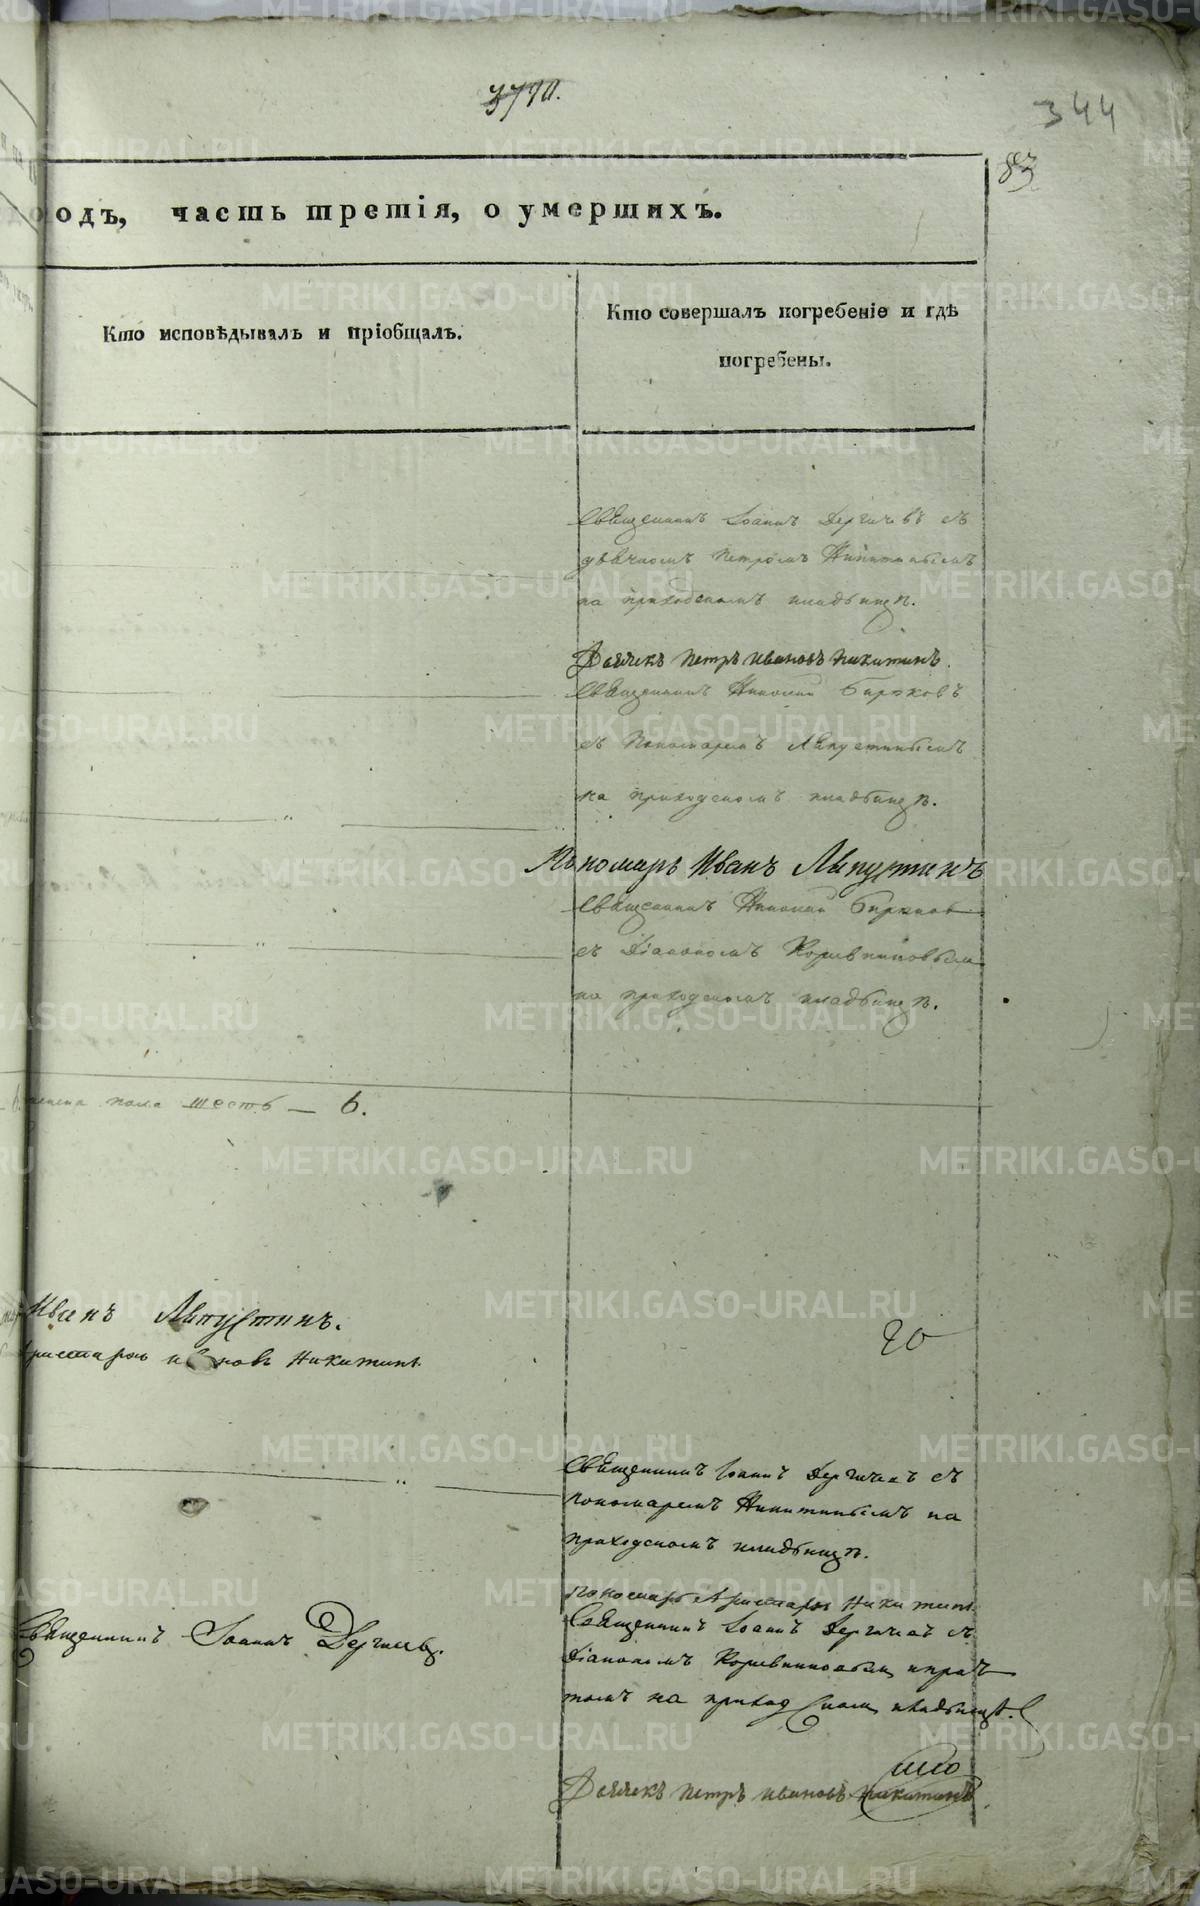 344
83
одъ, часть третія, о умершихъ.
Кто исповѣдывалъ и пріобщалъ.
Кто совершалъ погребеніе и гдѣ
погребены.
Священникъ Іоаннъ Дергачевъ съ
дьячкомъ Петромъ Никитинымъ
на приходскомъ кладбищѣ.
Дьячекъ Петръ Ивановъ Никитинъ.
Священникъ Николай Бирюковъ
съ Пономаремъ Ляпустинымъ
на приходскомъ кладбищѣ.
Пономарь Иванъ Ляпустинъ
Священникъ Николай
съ Діакономъ Коровниковымъ
на приходскомъ кладбищѣ.
пола шесть — 6.
Иванъ Ляпустинъ.
Никитинъ.
20
Священникъ Іоаннъ Дергачевъ съ
пономаремъ Никитинымъ на
приходскомъ кладбищѣ.
пономарь Аристархъ Никитинъ.
Священникъ Іоаннъ Дергачевъ съ
Священникъ Іоаннъ Дергачевъ.
Діакономъ Коровниковымъ и прич
томъ на приходскомъ кладбищѣ.
Дьячекъ Петръ Ивановъ Никитинъ.
METRIKI.GASO-URAL.RU